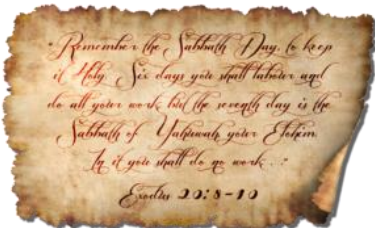 "Remember the Sabbath Day, to keep
it Holy. Six days you shall labour and
do all your work but the seventh day is the
Sabbath of Yahuwah your Elohim.
In it you shall do no work . ."
Exodus 20:8-10